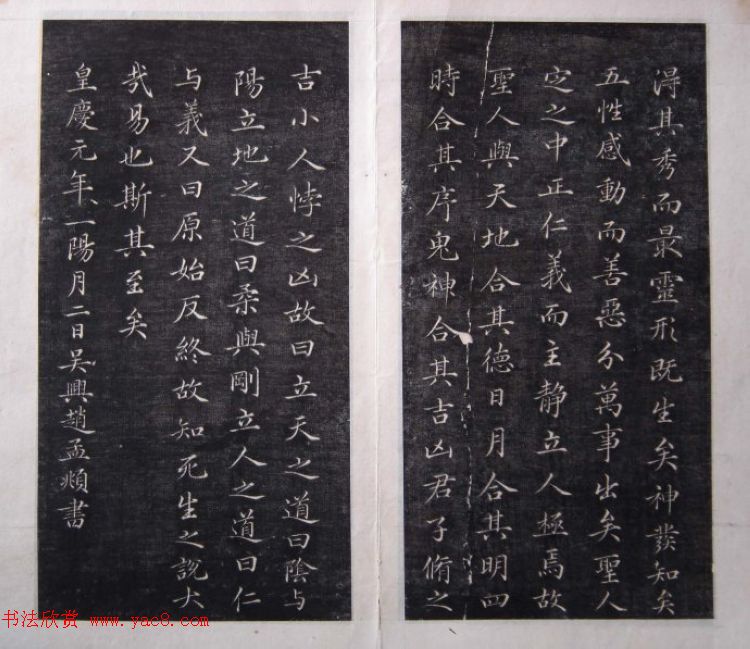 得其秀而最靈形既生矣神發知矣
五性感動而善惡分萬事出矣聖人
定之中正仁義而主靜立人極焉故
聖人與天地合其德日月合其明四
時合其序鬼神合其吉凶君子脩之
吉小人悖之凶故曰立天之道曰陰与
陽立地之道曰柔與剛立人之道曰仁
与義又曰原始反終故知死生之說大
哉易也斯其至矣
皇慶元年一陽月二日吳興趙孟頫書
书法欣赏 www.yac8.com